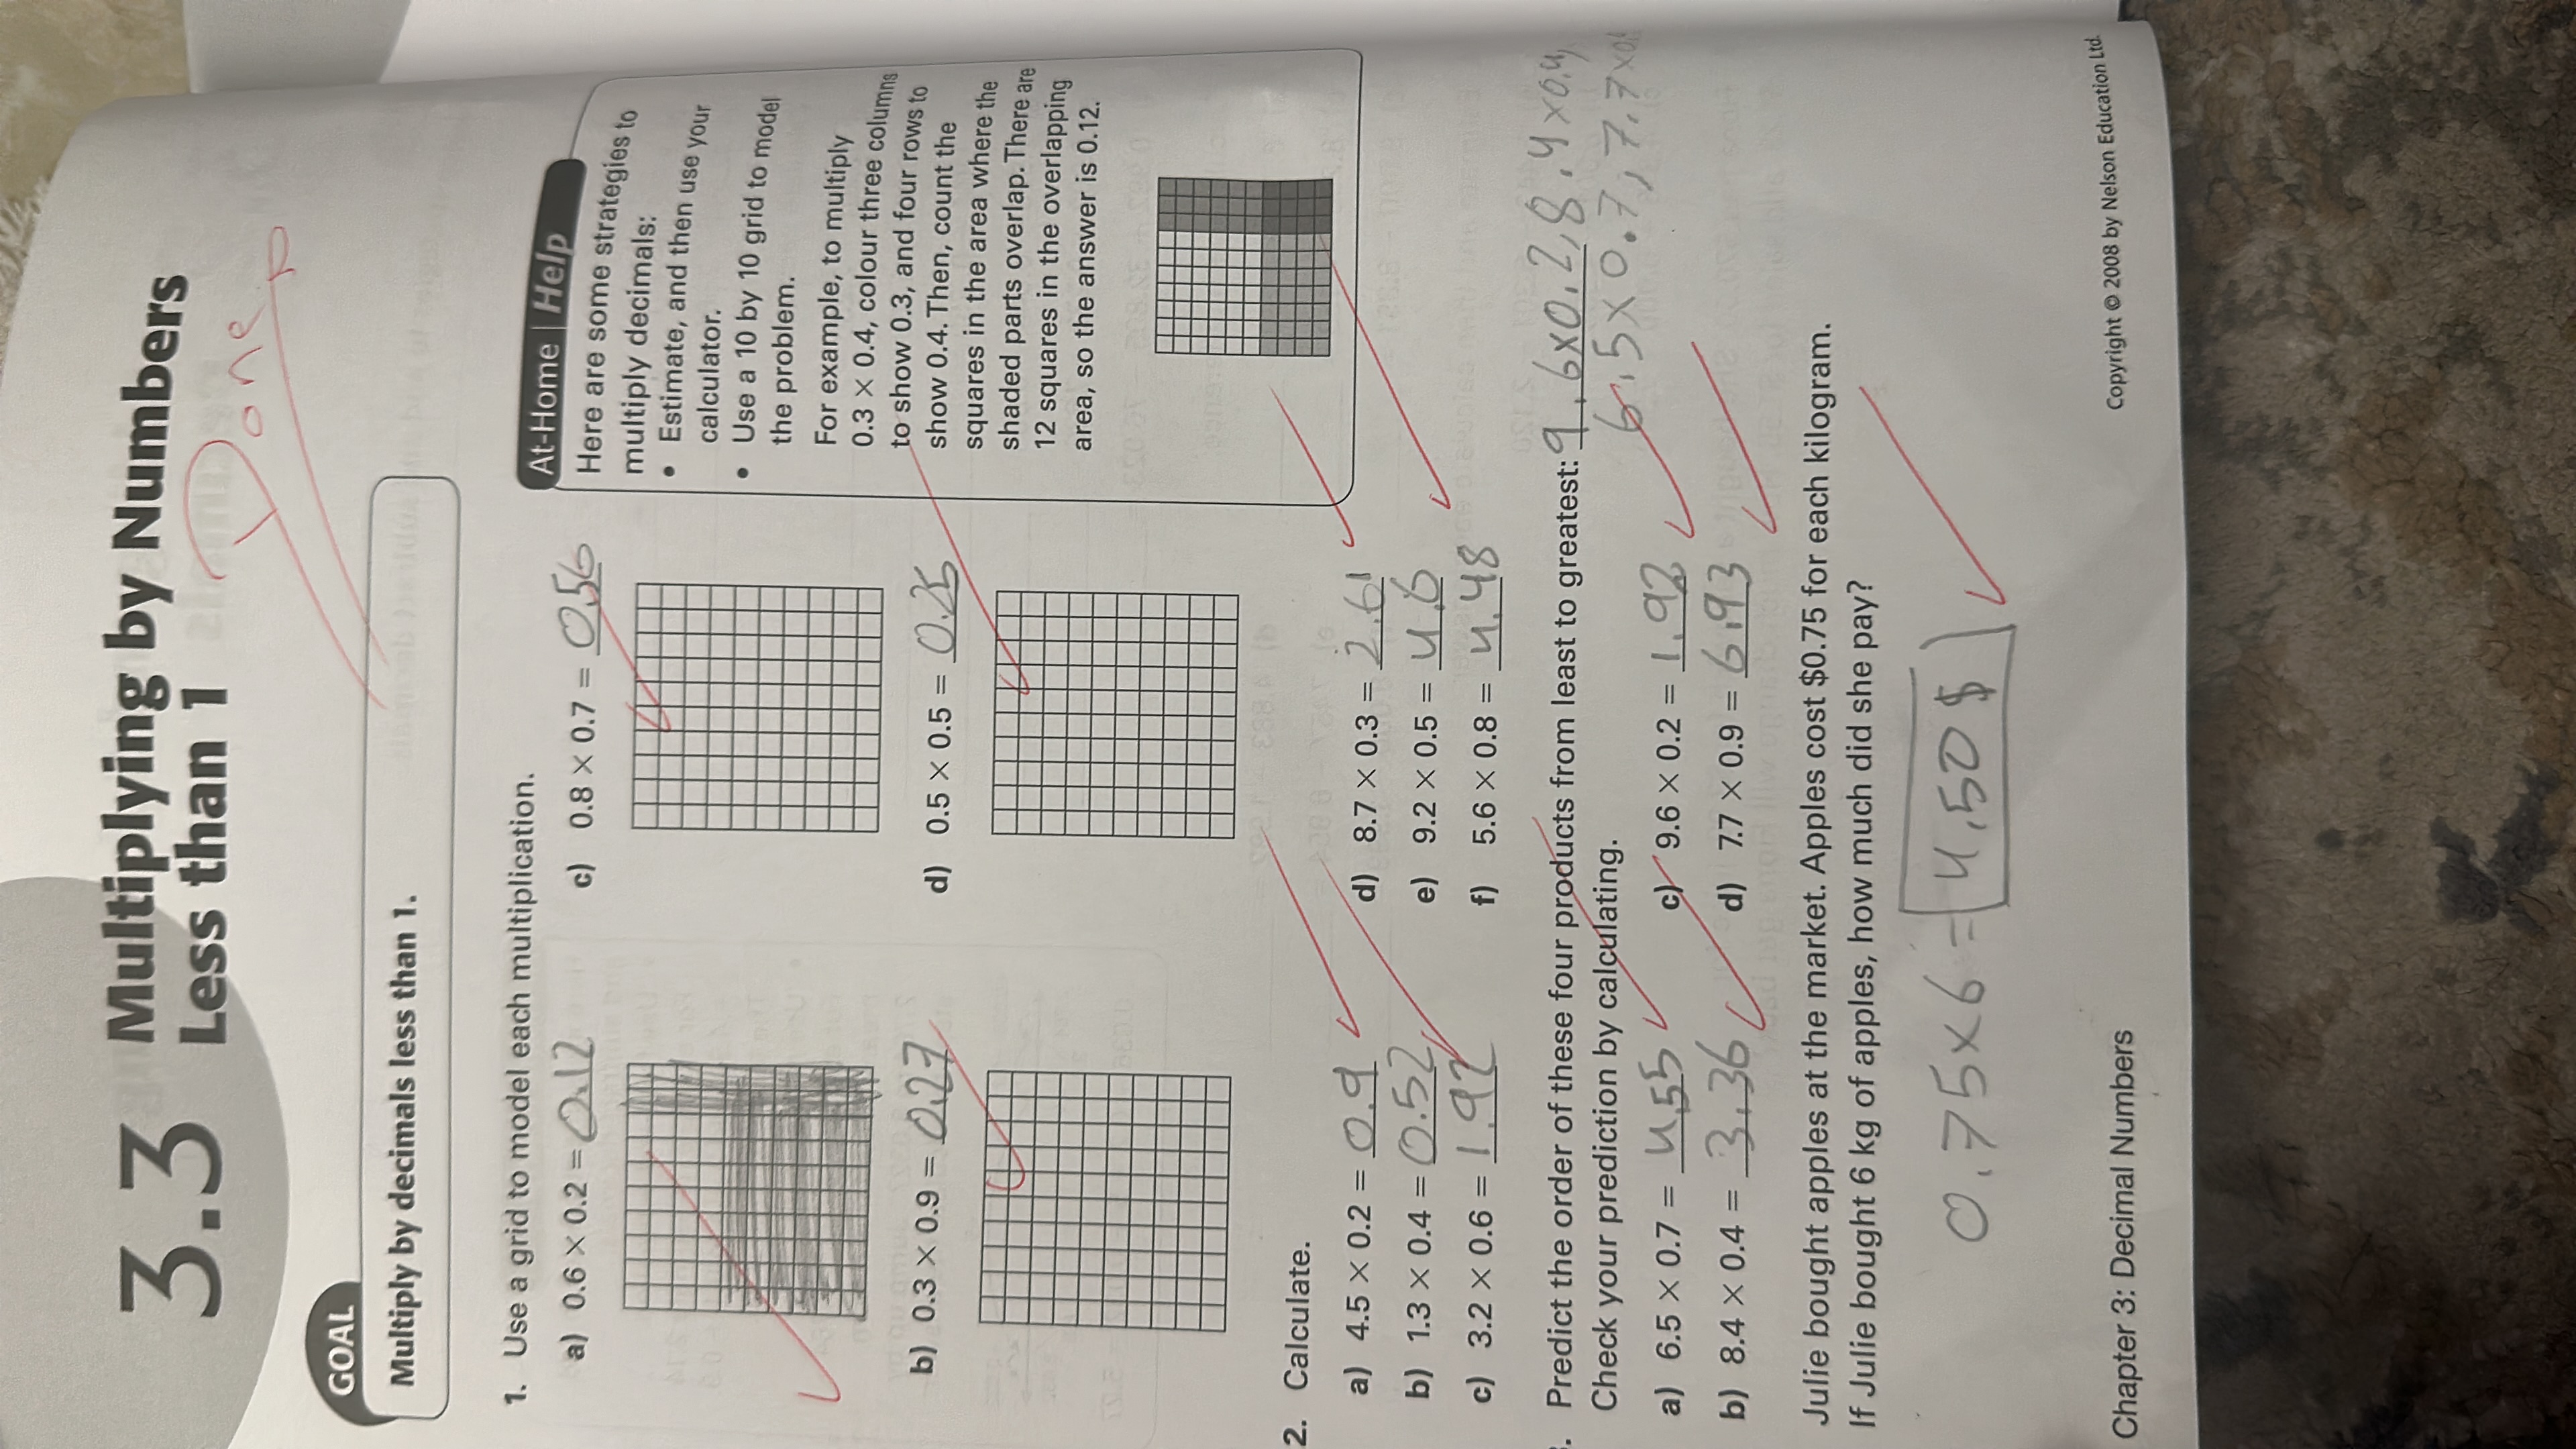 3.3 Multiplying by Numbers
Less than 1
Done
GOAL
Multiply by decimals less than 1.
1. Use a grid to model each multiplication.
a) 0.6 × 0.2 = 0.12
b) 0.3 × 0.9 = 0.27
c) 0.8 × 0.7 = 0.56
d) 0.5 × 0.5 = 0.25
At-Home Help
Here are some strategies to
multiply decimals:
• Estimate, and then use your
calculator.
• Use a 10 by 10 grid to model
the problem.
For example, to multiply
0.3 × 0.4, colour three columns
to show 0.3, and four rows to
show 0.4. Then, count the
squares in the area where the
shaded parts overlap. There are
12 squares in the overlapping
area, so the answer is 0.12.
2. Calculate.
a) 4.5 × 0.2 = 0.9
b) 1.3 × 0.4 = 0.52
c) 3.2 × 0.6 = 1.92
d) 8.7 × 0.3 = 2.61
e) 9.2 × 0.5 = 4.6
f) 5.6 × 0.8 = 4.48
Predict the order of these four products from least to greatest: 9.6x0.2, 8.4x0.4,
6.5x0.7, 7.7x0.
Check your prediction by calculating.
a) 6.5 × 0.7 = 4.55
b) 8.4 × 0.4 = 3.36
c) 9.6 × 0.2 = 1.92
d) 7.7 × 0.9 = 6.93
Julie bought apples at the market. Apples cost $0.75 for each kilogram.
If Julie bought 6 kg of apples, how much did she pay?
0.75x6 = 4.50$
Chapter 3: Decimal Numbers
Copyright © 2008 by Nelson Education Ltd.